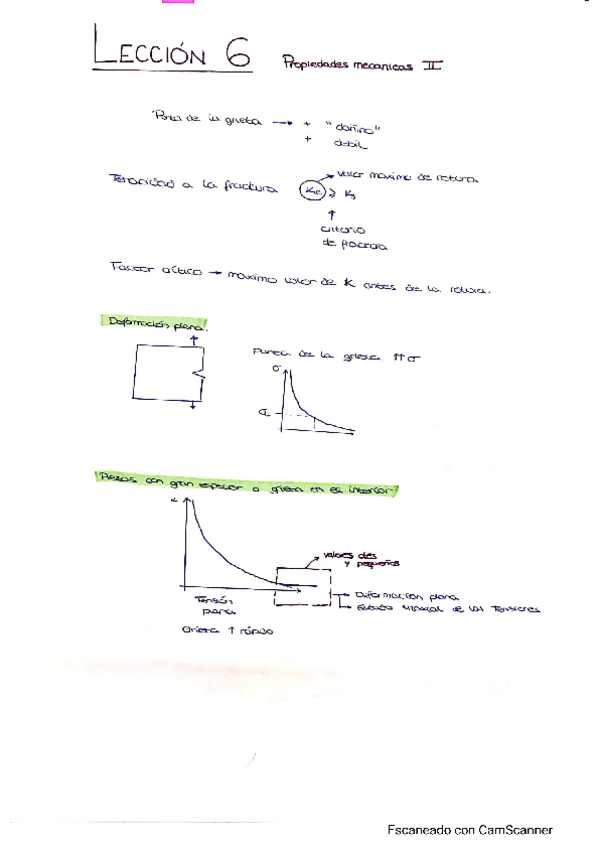 LECCIÓN 6 Propiedades mecanicas II
Punta de la grieta → + "dañino"
+ debil
Tenacidad a la fractura
valor maximo de rotura
criterio
de fractura
Factor crítico → maximo valor de K antes de la rotura.
Deformación plana.
Punta de la grieta ↑↑ σ
σ
Piezas con gran espesor o grieta en el interior
K
valores ctes
y pequeños
Tensión
plana
Deformacion plana
Estado triaxial de las Tensiones
Grieta ↑ rápido
Escaneado con CamScanner